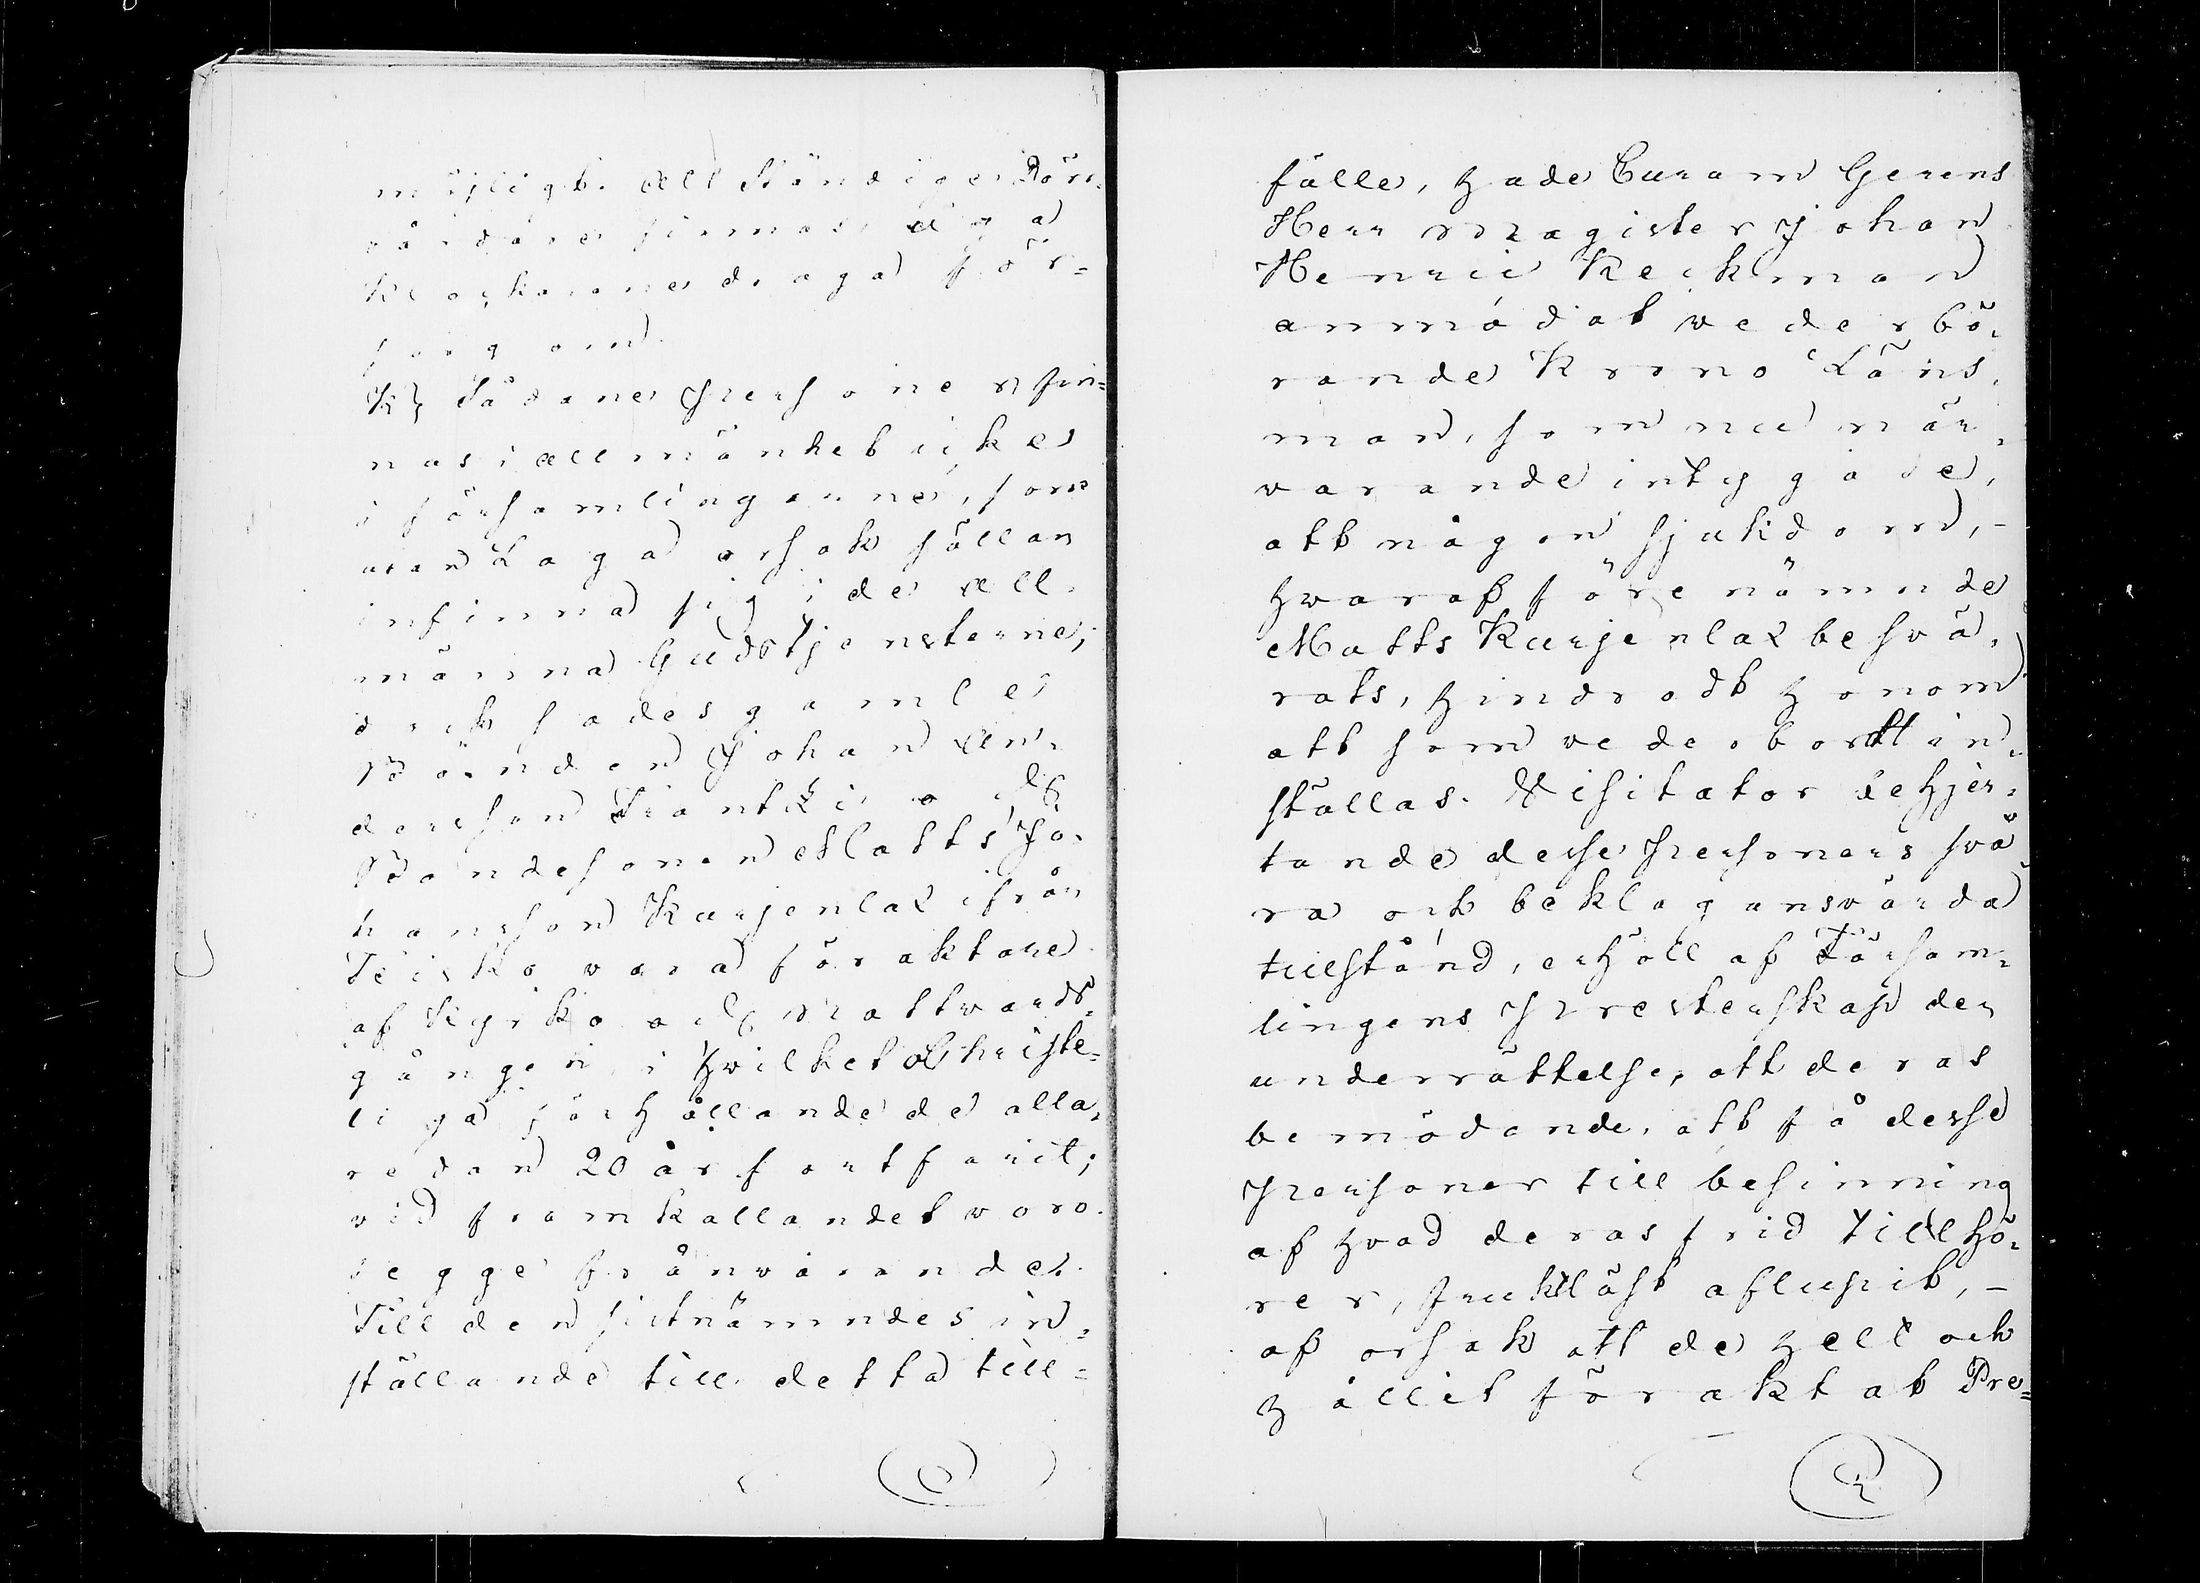 möjligt. All ständiga Rör-
vårdare finnas, äga
klockarene draga för-
sorg om.
K) Sådane Personer fin-
nas i allmänhet icke
i församlingarne, som
utan Laga orsak sällan
infinna sig i de all-
männa Gudstjensterne;
dock sades gamle
Bonden Johan An-
dersson Frantti och
Bondesonen Matts Jo-
hansson Kurjenlax ifrån
Teisko vara föraktare
af Kyrko och Nattvards-
gången, i hvilket oChriste-
liga förhållande de alla-
redan 20 år fortfarit;
vid framkallandet voro
begge frånvarande.
Till den sistnämndes in-
ställande till detta till-
fälle, hade Curam Gerens
Herr Magister Johan
Henric Keckman
anmodat vederbö-
rande Krono Läns-
man, som nu när-
varande intygade,
att någon sjukdom, -
hvaraf förenämnde
Matts Kurjenlax besvä-
rats, hindradt honom
att som vederbordt in-
ställas. Visitator behjer-
tande desse Personers svå-
ra och beklagansvärda
tillstånd, erhöll af Försam-
lingens Presterskap den
underrättelse, att deras
bemödande, att få desse
Personer till besinning
af hvad deras frid tillhö-
rer, fruktlöst aflupit, -
af orsak att de helt och
hållit föraktat Pre-